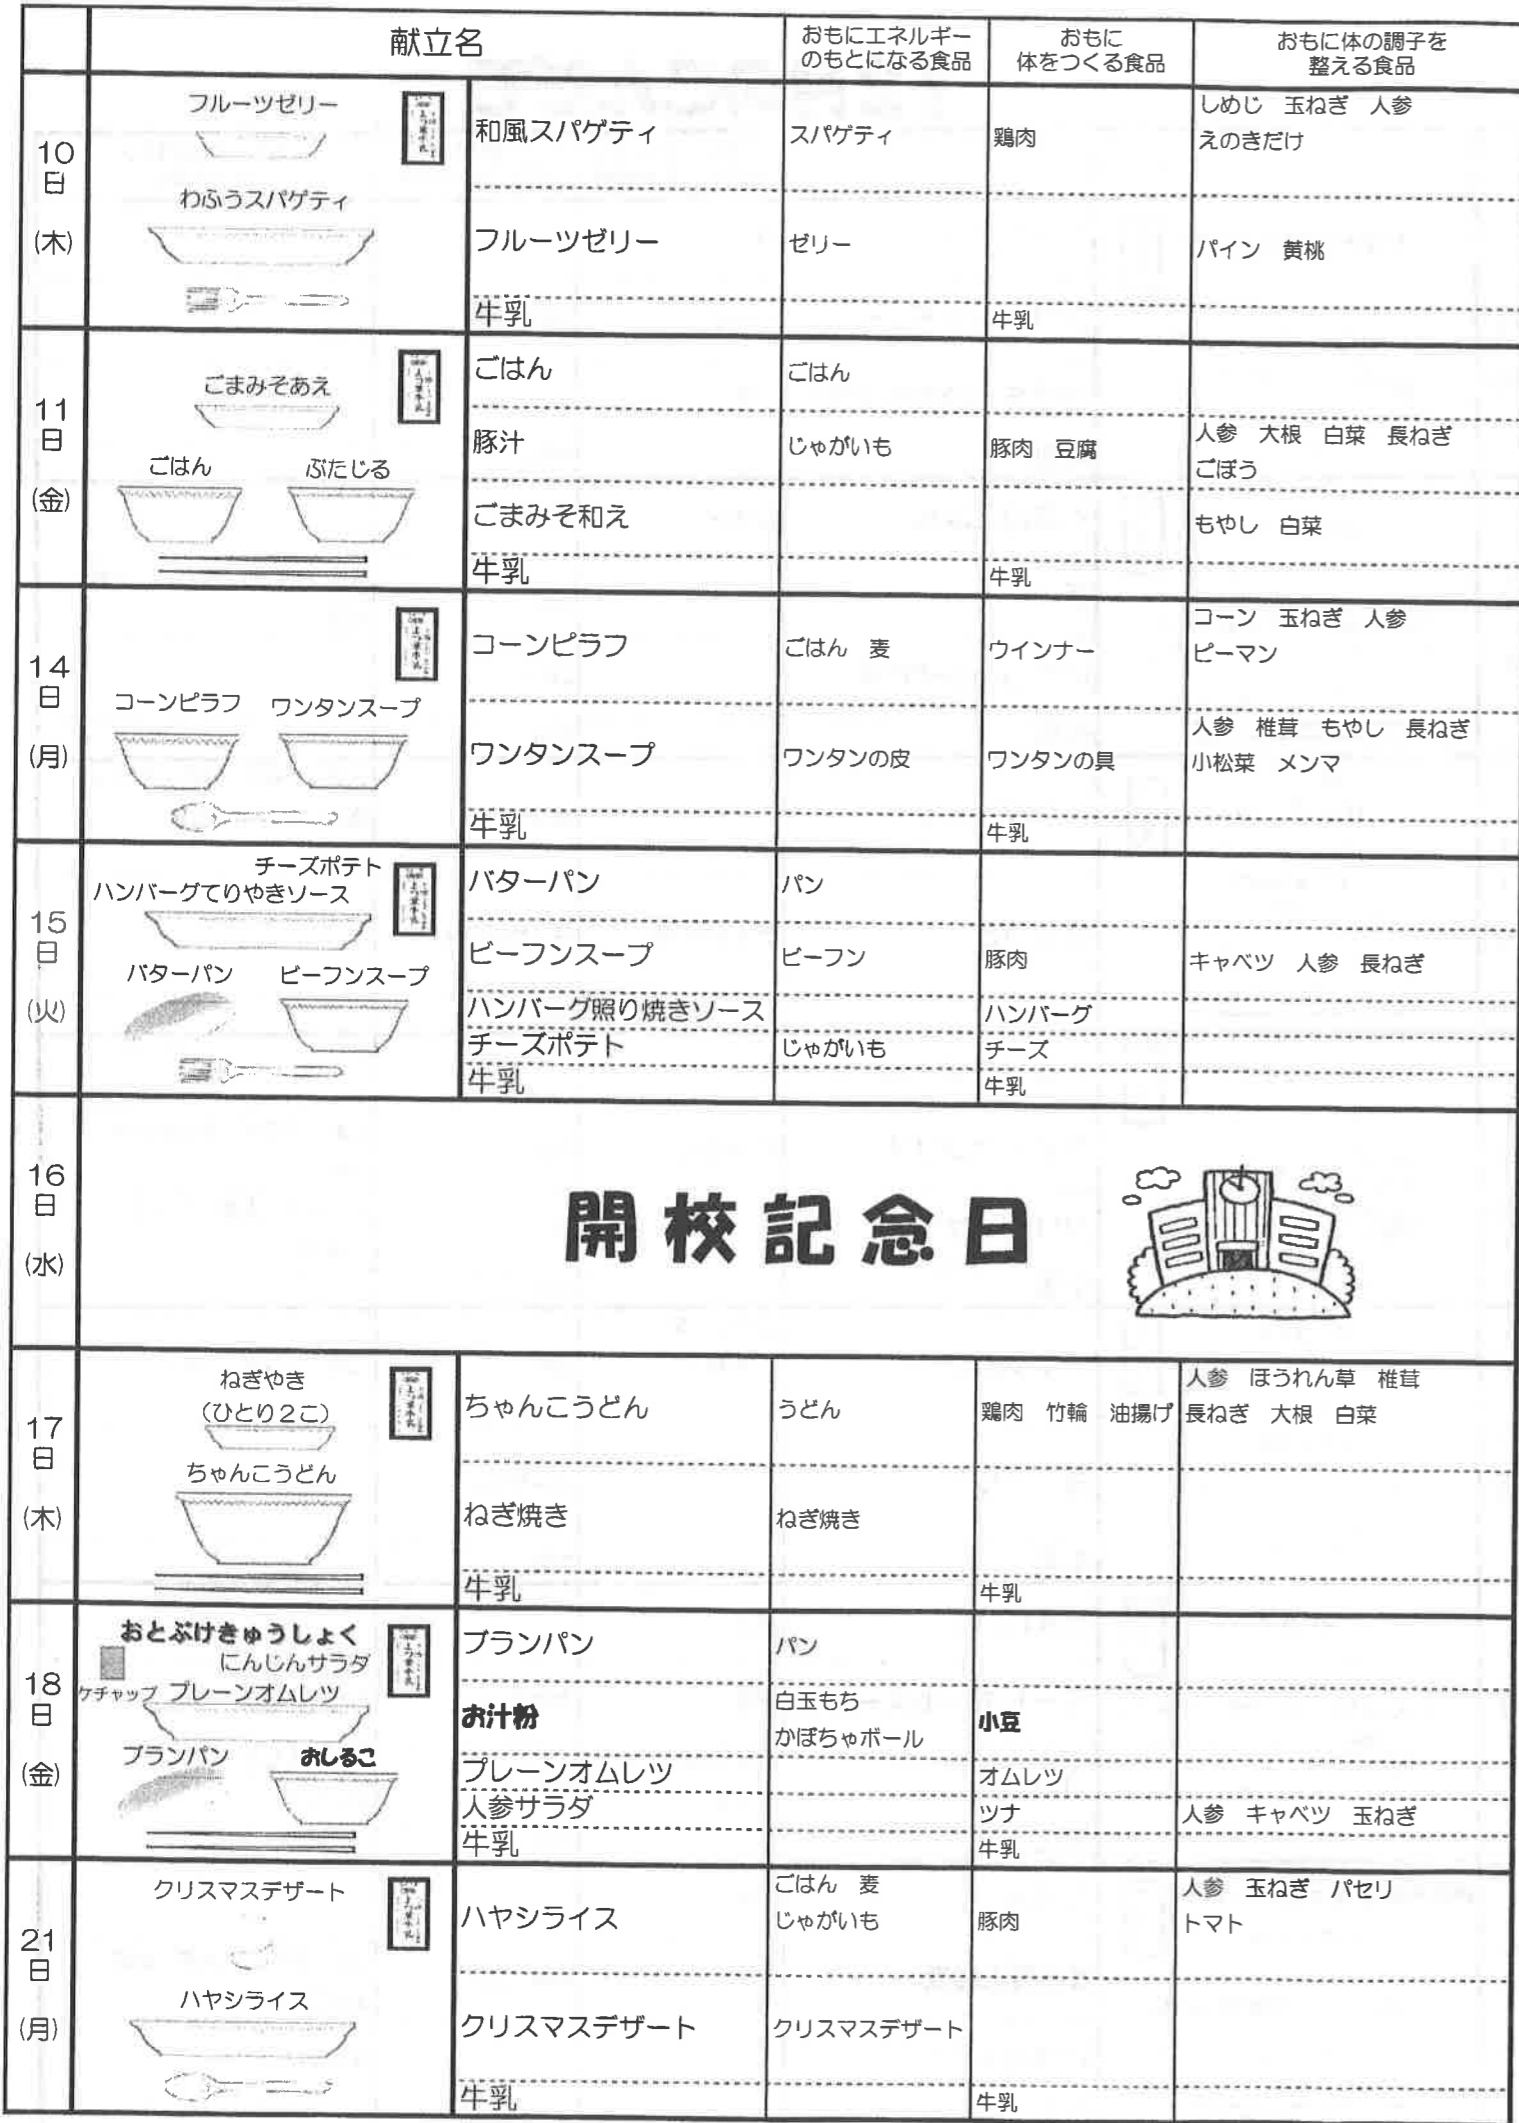 献立名
おもにエネルギー
のもとになる食品
おもに
体をつくる食品
おもに体の調子を
整える食品
10
日
(木)
フルーツゼリー
わふうスパゲティ
和風スパゲティ
スパゲティ
鶏肉
しめじ 玉ねぎ 人参
えのきだけ
フルーツゼリー
ゼリー
パイン 黄桃
牛乳
牛乳
11
日
(金)
ごまみそあえ
ごはん ぶたじる
ごはん
ごはん
豚汁
じゃがいも
豚肉 豆腐
人参 大根 白菜 長ねぎ
ごぼう
ごまみそ和え
もやし 白菜
牛乳
牛乳
14
日
(月)
コーンピラフ ワンタンスープ
コーンピラフ
ごはん 麦
ウインナー
コーン 玉ねぎ 人参
ピーマン
ワンタンスープ
ワンタンの皮
ワンタンの具
人参 椎茸 もやし 長ねぎ
小松菜 メンマ
牛乳
牛乳
15
日
(火)
チーズポテト
ハンバーグてりやきソース
バターパン ビーフンスープ
バターパン
パン
ビーフンスープ
ビーフン
豚肉
キャベツ 人参 長ねぎ
ハンバーグ照り焼きソース
ハンバーグ
チーズポテト
じゃがいも
チーズ
牛乳
牛乳
16
日
(水)
開校記念日
17
日
(木)
ねぎやき
(ひとり2こ)
ちゃんこうどん
ちゃんこうどん
うどん
鶏肉 竹輪 油揚げ
人参 ほうれん草 椎茸
長ねぎ 大根 白菜
ねぎ焼き
ねぎ焼き
牛乳
牛乳
18
日
(金)
おとふけきゅうしょく
にんじんサラダ
ケチャップ プレーンオムレツ
ブランパン おしるこ
ブランパン
パン
お汁粉
白玉もち
かぼちゃボール
小豆
プレーンオムレツ
オムレツ
人参サラダ
ツナ
人参 キャベツ 玉ねぎ
牛乳
牛乳
21
日
(月)
クリスマスデザート
ハヤシライス
ハヤシライス
ごはん 麦
じゃがいも
豚肉
人参 玉ねぎ パセリ
トマト
クリスマスデザート
クリスマスデザート
牛乳
牛乳